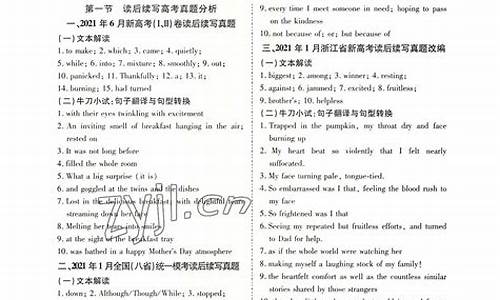 第一节 读后续写高考真题分析
一、2021年6月新高考(Ⅰ,Ⅱ)卷读后续写真题
(一)文本解读
1. to make; 2. which; 3. care; 4. quietly;
5. while; 6. into; 7. mixture; 8. smoothly; 9. out;
10. panicked; 11. Thankfully; 12. a; 13. it;
14. burning; 15. had turned
(二)牛刀小试:句子翻译与句型转换
1. with their eyes twinkling with excitement
2. An inviting smell of breakfast hanging in the air;
rested on
3. It was not long before
4. filled the whole room
5. What a big surprise (it is)
6. and goggled at the twins and the dishes
7. Lost in the delicious breakfast, with delightful tears
streaming down her face
8. Melting her tears into smiles
9. at the sight of the breakfast tray
10. was bathed in a happy Mother's Day atmosphere
二、2021年1月全国(八省)统一模考读后续写真题
(一)文本解读
1. down; 2. Although/Though/While; 3. stopped;
9. every time I meet someone in need; hoping to pass
on the kindness
10. not because of; or; but because of
三、2021年1月浙江省新高考读后续写真题改编
(一)文本解读
1. biggest; 2. among; 3. winner; 4. resting;
5. against; 6. jammed; 7. excited; 8. fruitless;
9. brother's; 10. helpless
(二)牛刀小试:句子翻译与句型转换
1. Trapped in the pumpkin, my throat dry and face
burning up
2. My heart beat so violently that I felt nearly
suffocated.
3. My face turning pale, tongue-tied.
4. So embarrassed was I that, feeling the blood rush to
my face
5. So frightened was I that
6. Seeing my repeated but fruitless efforts, and turned
to Dad for help.
7. as if the whole world were watching her
8. making myself a laughing stock of my family!
9. the heartfelt comfort as well as the constant similar
stories shared by those strangers
zyjl.cn